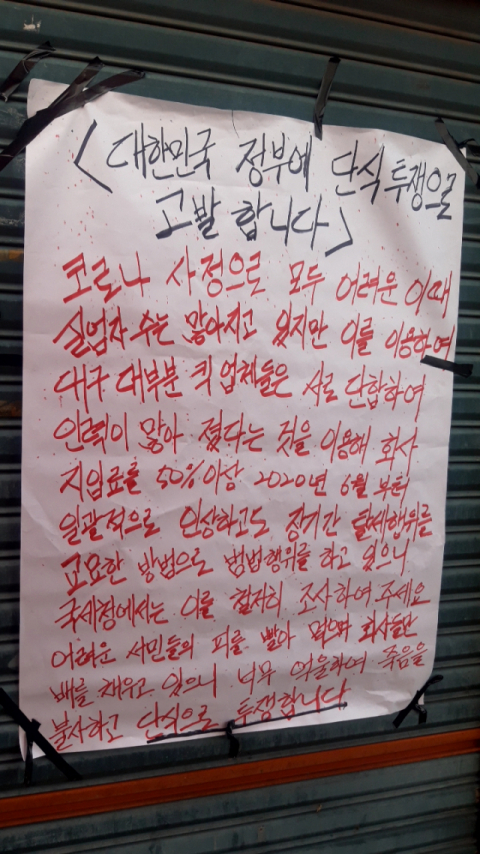 <대한민국 정부에 단식 투쟁으로
고발 합니다」
코로나 사정으로 모두 어려운 이때
실업자 수는 많아지고 있지만 이를 이용하여
대구 대부분 퀵 업체들은 서로 단합하여
인력이 많아 졌다는 것을 이용해 회사
지입료를 50% 이상 2020년 6월 부터
일괄적으로 인상하고도 장기간 탈세행위를
교묘한 방법으로 범법행위를 하고 있으니
국세청에서는 이를 철저히 조사하여 주세요
어려운 서민들의 피를 빨아 먹으며 회사들만
배를 채우고 있으니 너무 억울하여 죽음을
불사하고 단식으로 투쟁합니다